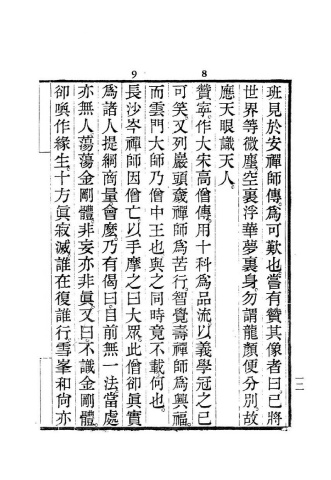 班見於安禪師傳。爲可歎也。嘗有贊其像者曰。已將
世界等微塵。空裏浮華夢裏身。勿謂龍顏便分別。故
應天眼識天人。
8
贊寧。作大宋高僧傳。用十科爲品流。以義學冠之。已
可笑。又列巖頭奯禪師爲苦行。智覺壽禪師爲興福。
而雲門大師乃僧中王也。與之同時。竟不載何也。
9
長沙岑禪師因僧亡。以手摩之曰。大眾。此僧卻眞實
爲諸人提綱商量會麽。乃有偈曰。目前無一法。當處
亦無人。蕩蕩金剛體。非妄亦非眞。又曰。不識金剛體。
卻喚作緣生。十方眞寂滅。誰在復誰行。雪峯和尙亦
三